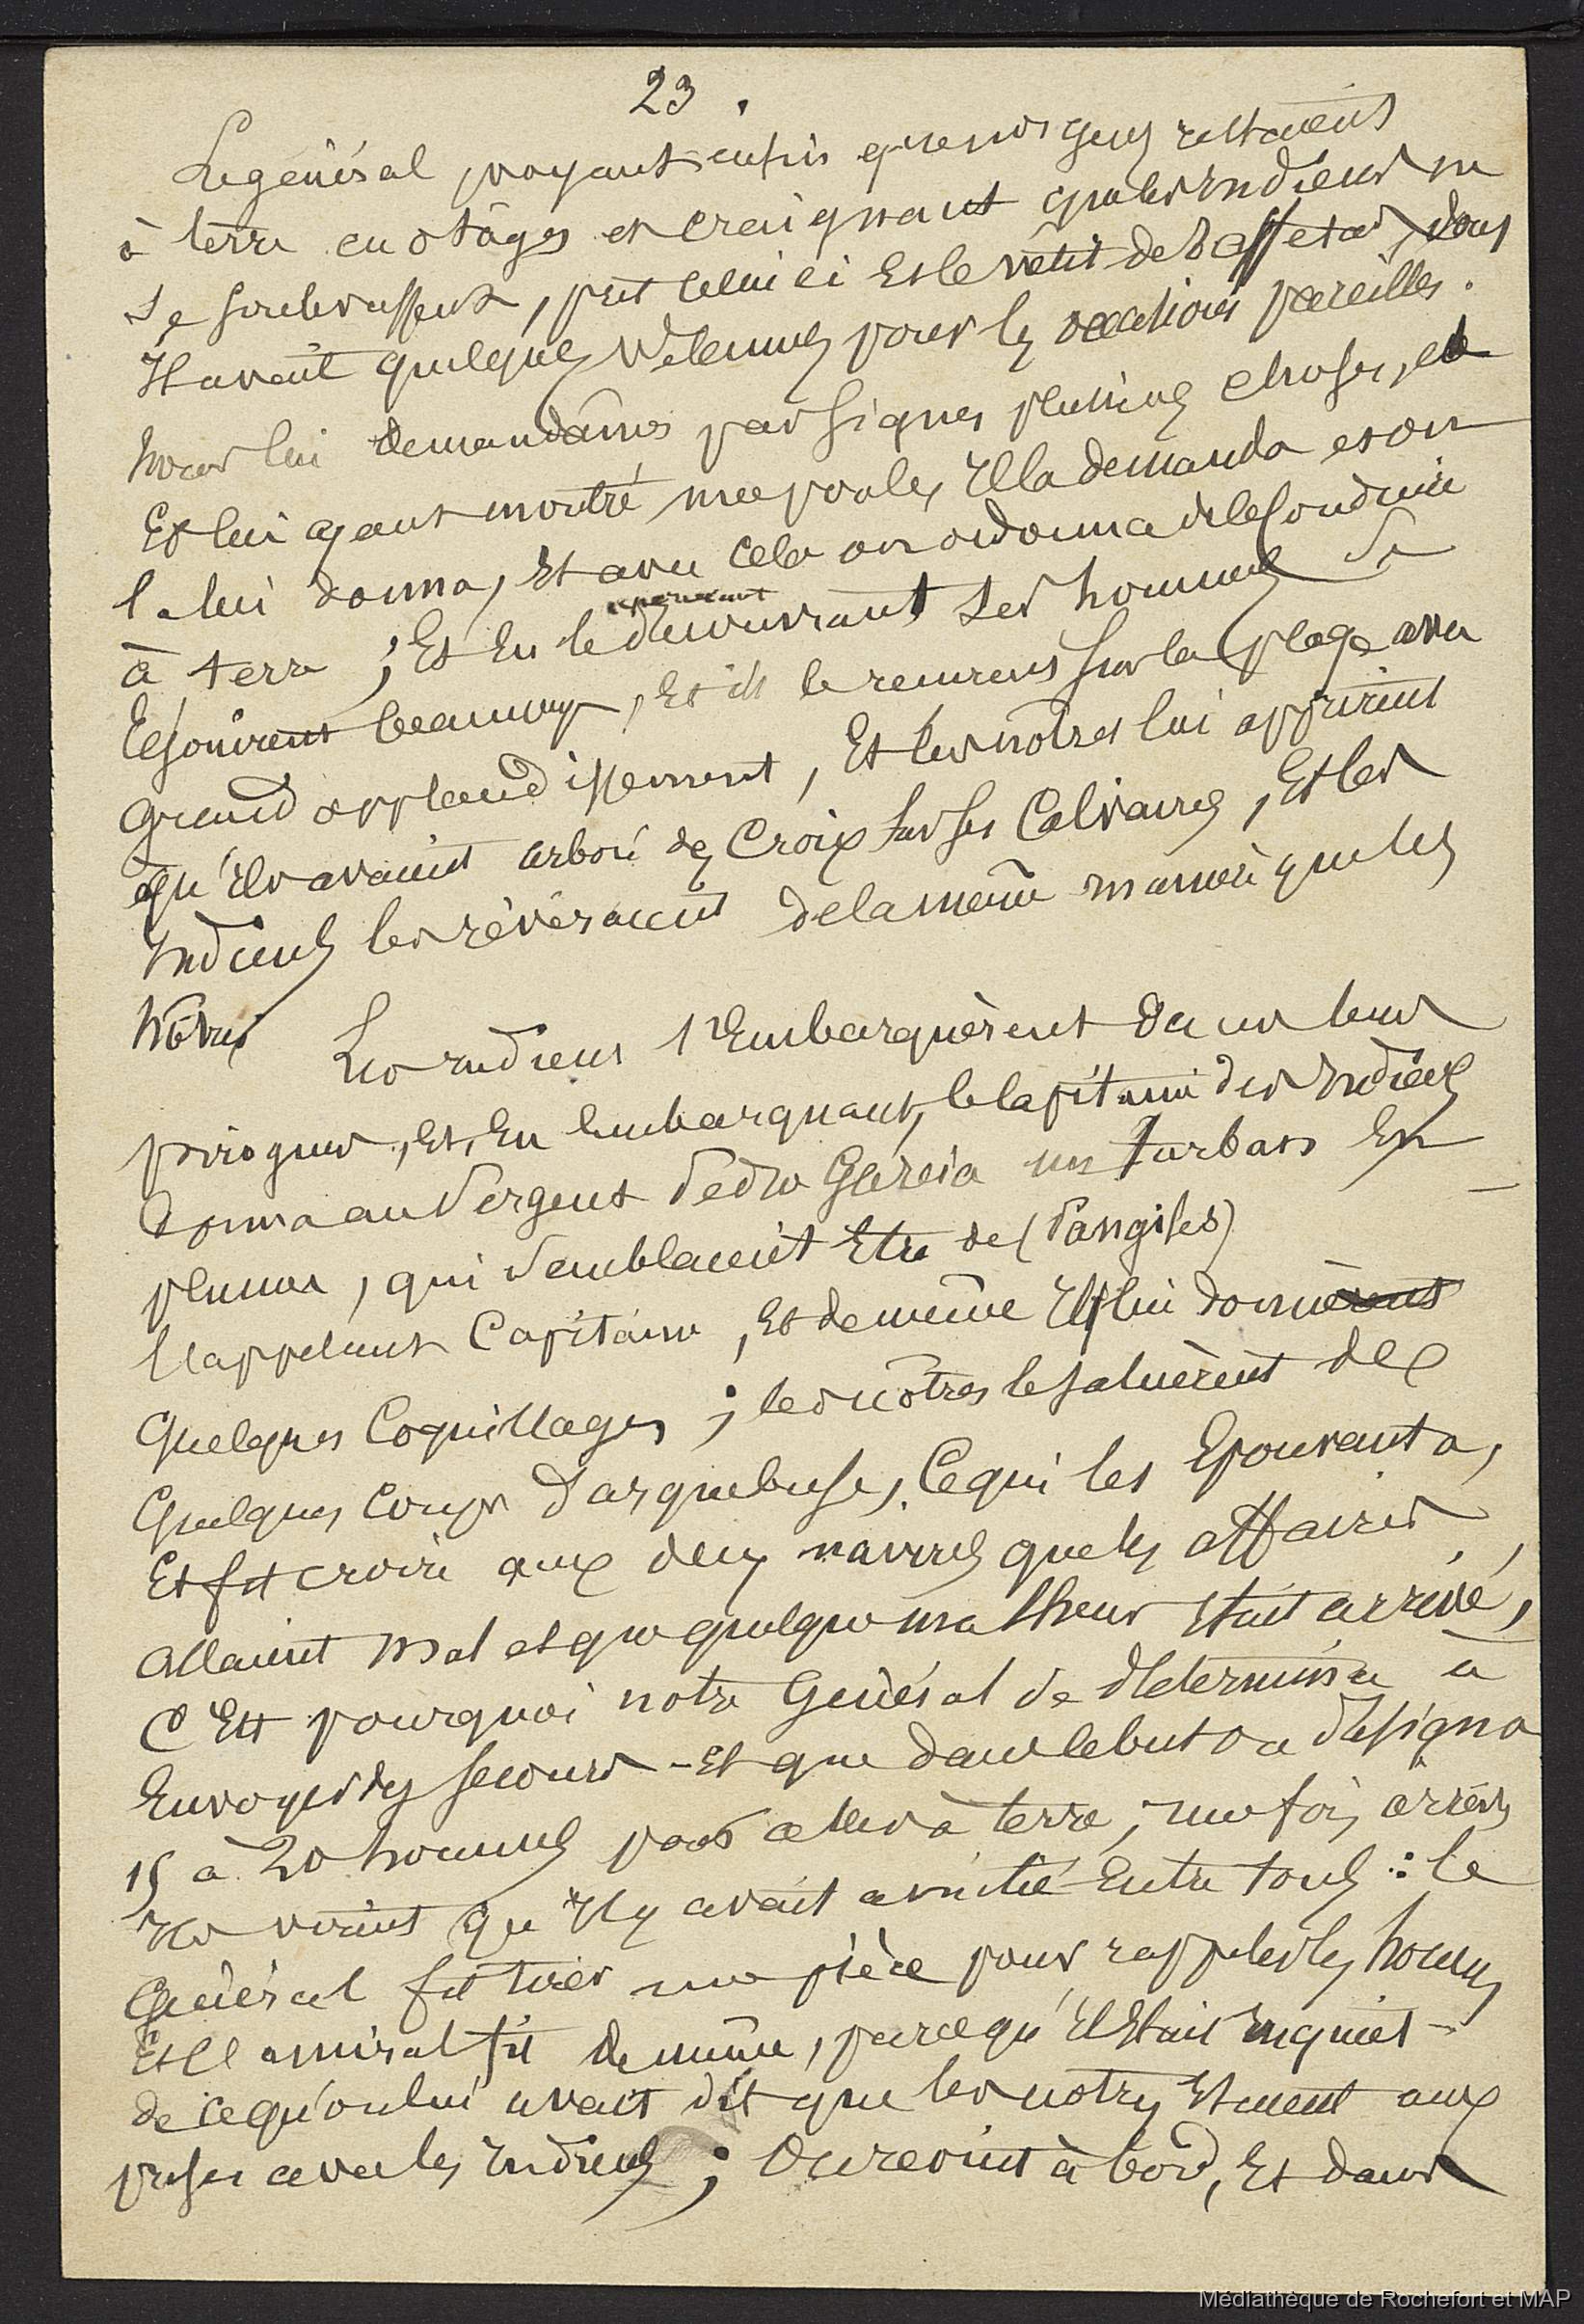 23.
Le général, voyant enfin que nos gens restaient
à terre en otâges et craignant que les Indiens ne
se soulevassent, prit celui ci et le vêtit de Taffetas, dont
Il avait quelques vêtements pour les occasions pareilles.
Nous lui demandâmes par signes plusieurs choses, et
Et lui ayant montré une poule, Il la demanda et on
la lui donna, Et avec cela on ordonna de le conduire
à terre ; Et En le découvrant ses hommes se
apercevant
réjouirent beaucoup, Et ils le reçurent sur la plage avec
grand applaudissement, Et les nôtres lui apprirent
qu'Ils avaient arboré des Croix sur ses Calvaires, Et les
Indiens les révéraient de la même manière que les
Nôtres
Les Indiens s'Embarquèrent dans leurs
pirogues, Et, En Embarquant, le Capitaine des Indiens
donna au Sergent Pedro Garcia un Turban En
plumes, qui semblaient Etre de (Pangiles)
l'appelant Capitaine, Et de même Il lui donnèrent
quelques Coquillages ; les nôtres le saluèrent de
quelques Coups d'arquebuse, Ce qui les Epouvanta,
Et fit croire aux deux navires que les affaires
allaient mal et que quelque malheur Etait arrivé,
C'Est pourquoi notre Général se détermina à
Envoyer des secours - Et que dans le but on désigna
15 à 20 hommes pour aller à terre ; une fois arrivés
Ils virent qu'Il y avait amitié Entre tous : le
Général fit tirer une pièce pour rappeler les hommes
Et l'amiral fit de même, parce qu'Il Etait Inquiet
de ce qu'on lui avait dit que les nôtres Etaient aux
prises avec les Indiens ; On revint à bord, Et dans
Médiathèque de Rochefort et MAP